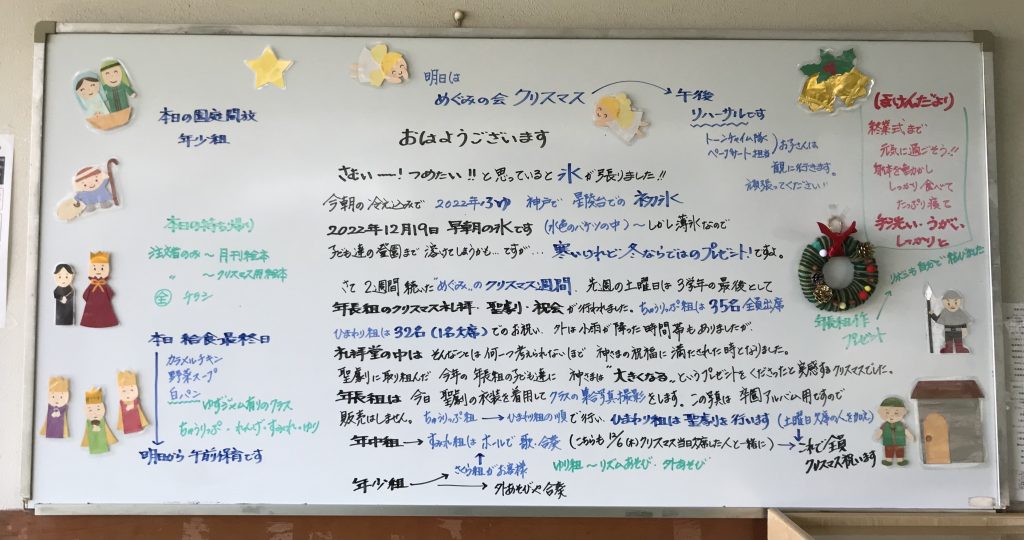 明日は
めぐみの会 クリスマス → 午後
リハーサルです
トーンチャイム隊
ペープサート担当 ) お子さんは
観に行きます。
頑張ってください!
おはようございます
さむいー!つめたい!!と思っていると 氷が張りました!!
今朝の冷え込みで 2022年の冬 神戸で 星陵台での 初氷
2022年12月19日 早朝の氷です (水色のバケツの中) 〜しかし薄氷なので
子ども達の登園まで 溶けてしまうかも…ですが… 寒いけれど冬ならではのプレゼント!ですよ。
さて 2週間続いた"めぐみ"のクリスマス週間、先週の土曜日は 3学年の最後として
年長組のクリスマス礼拝・聖劇・祝会が行われました。ちゅうりっぷ組は 35名 全員出席
ひまわり組は 32名 (1名欠席) でのお祝い、外は小雨が降った時間帯もありましたが、
礼拝堂の中は そんなことは何一つ考えられないほど 神さまの祝福に満たされた時となりました。
聖劇に取り組んだ 今年の年長組の子ども達に 神さまは "大きくなる"というプレゼントをくださったと実感するクリスマスでした。
年長組は 今日 聖劇の衣装を着用して クラスの集合写真撮影をします。この写真は 卒園アルバム用ですので
販売はしません。ちゅうりっぷ組 → ひまわり組の順で行い、ひまわり組は聖劇を行います (土曜日欠席のくんを加え)
年中組 → すみれ組は ホールで 歌・合奏 (こちらも 12/6(火)クリスマス当日欠席したくんと一緒に) → これで全員
クリスマス祝います
さくら組がお客様
ゆり組 〜 リズムあそび・外あそび
年少組 → 外あそびや合奏
本日の園庭開放
年少組
本日の持ち帰り
注文者のみ 〜 月刊絵本
〃 〜 クリスマス用絵本
全 チラシ
本日 給食最終日
カラメルチキン
野菜スープ
白パン
ゆずジャム有りのクラス
ちゅうりっぷ・れんげ・すみれ・ゆり
明日から 午前保育です
(ほけんだより)
終業式まで
元気に過ごそう!!
身体を動かし
しっかり食べて
たっぷり寝て
手洗い・うがい、
しっかりと
リボンも自分で結びました
年長組作
プレゼント